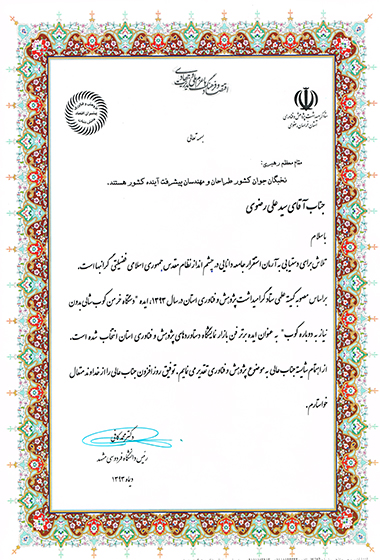 اقتصاد و فرهنگ با عزم ملی و مدیریت جهادی
ستاد گرامیداشت پژوهش و فناوری
استان خراسان رضوی
بسمه تعالی
مقام معظم رهبری:
نخبگان جوان کشور طراحان و مهندسان پیشرفت آینده کشور هستند.
جناب آقای سید علی رضوی
با سلام
تلاش برای دستیابی به آرمان استقرار جامعه دانایی در چشم انداز نظام مقدس جمهوری اسلامی فضیلتی گرانبها است.
براساس مصوبه کمیته علمی ستاد گرامیداشت پژوهش و فناوری استان در سال ۱۳۹۳، ایده "دستگاه خرمن کوب شالی بدون
نیاز به دوباره کوب" به عنوان ایده برتر فن بازار نمایشگاه دستاوردهای پژوهش و فناوری استان انتخاب شده است.
از اهتمام شایسته جناب عالی به موضوع پژوهش و فناوری تقدیر می نمایم. توفیق روز افزون جناب عالی را از خداوند متعال
خواستارم.
دکتر محمد کافی
رئیس دانشگاه فردوسی مشهد
دیماه ۱۳۹۳